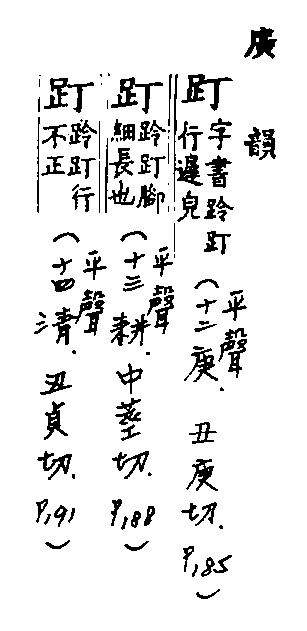 廣韻
䟓
字書跉䟓
行遟皃
(平聲
十二庚. 丑庚切. P.85)
䟓
跉䟓腳
細長也
(平聲
十三耕. 中莖切. P.188)
䟓
跉䟓行
不正
(平聲
十四清. 丑貞切. P.191)